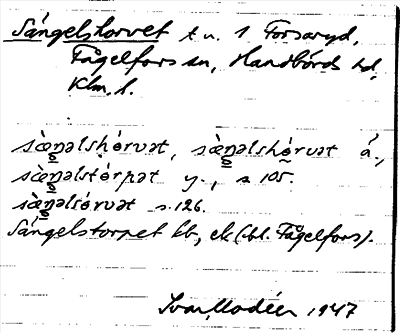 Sångelshorvet t.u. 1 Forsaryd,
Fågelfors sn, Handbörds hd,
Klm. l.
sàŋəlshórvət, sàŋəlshórvət á,
sàŋəlstórpət y., s 105.
sàŋəlsórvət s. 126.
Sångelstorpet kb, ek (bl. Fågelfors).
Ivar Modéer 1947